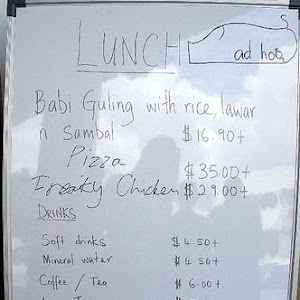 LUNCH
S
ad hoc
Babi Guling with rice, lawar
n Sambal $16.90+
Pizza $35.00+
Freaky Chicken $29.00+
DRINKS
Soft drinks $4.50+
Mineral water $4.50+
Coffee / Tea $6.00+